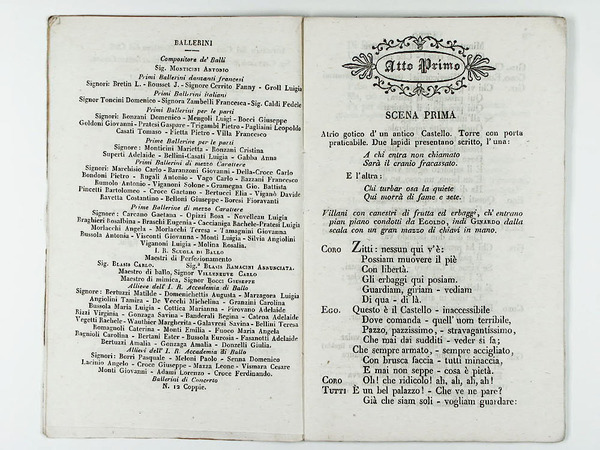 BALLERINI
Compositore de' Balli
Sig. MONTICINI ANTONIO
Primi Ballerini danzanti francesi
Signori: Bretin L. - Rousset J. - Signore Cerrito Fanny - Groll Luigia
Primi Ballerini italiani
Signor Toncini Domenico - Signora Zambelli Francesca - Sig. Caldi Fedele
Primi Ballerini per le parti
Signori: Ronzani Domenico - Mengoli Luigi - Bocci Giuseppe
Goldoni Giovanni - Pratesi Gaspare - Trigambi Pietro - Pagliaini Leopoldo
Casati Tomaso - Fietta Pietro - Villa Francesco
Prime Ballerine per le parti
Signore: Monticini Marietta - Ronzani Cristina
Superti Adelaide - Bellini-Casati Luigia - Gabba Anna
Primi Ballerini di mezzo Carattere
Signori: Marchisio Carlo - Baranzoni Giovanni - Della-Croce Carlo
Bondoni Pietro - Rugali Antonio - Vago Carlo - Razzani Francesco
Rumolo Antonio - Viganoni Solone - Gramegna Gio. Battista
Pincetti Bartolomeo - Croce Gaetano - Bertucci Elia - Viganò Davide
Ravetta Costantino - Belloni Giuseppe - Boresi Fioravanti
Prime Ballerine di mezzo Carattere
Signore: Carcano Gaetana - Opizzi Rosa - Novellau Luigia
Braghieri Rosalbina - Braschi Eugenia - Caccianiga Rachele-Pratesi Luigia
Morlacchi Angela - Morlacchi Teresa - Tamagnini Giovanna
Bussola Antonia - Visconti Giovanna - Monti Luigia - Silvia Angiolini
Viganoni Luigia - Molina Rosalia.
I. R. SCUOLA DI BALLO
Maestri di Perfezionamento
Sig. BLASIS CARLO. Sig.a BLASIS RAMACINI ANNUNCIATA.
Maestro di ballo, Signor VILLENEUVE CARLO
Maestro di mimica, Signor BOCCI GIUSEPPE
Allieve dell' I. R. Accademia di Ballo
Signore: Bertuzzi Matilde - Domenichettis Augusta - Marzagora Luigia
Angiolini Tamira - De Vecchi Michelina - Granzini Carolina
Bussola Maria Luigia - Cottica Marianna - Pirovano Adelaide
Rizzi Virginia - Gonzaga Savina - Banderali Regina - Catena Adelaide
Vegetti Rachele - Wauthier Margherita - Galavresi Savina - Bellini Teresa
Romagnoli Caterina - Monti Emilia - Fuoco Maria Angela
Bagnioli Carolina - Bertani Ester - Bussola Eurosia - Fasanotti Adelaide
Bertuzzi Amalia - Gonzaga Amalia - Donzelli Giulia.
Allievi dell' I. R. Accademia di Ballo
Signori: Borri Pasquale - Meloni Paolo - Senna Domenico
Lacinio Angelo - Croce Giuseppe - Mazza Leone - Vismara Cesare
Monti Giovanni - Adami Lorenzo - Croce Ferdinando.
Ballerini di Concerto
N. 12 Coppie.
Atto Primo
SCENA PRIMA
Atrio gotico d' un antico Castello. Torre con porta
praticabile. Due lapidi presentano scritto, l' una:
A chi entra non chiamato
Sarà il cranio fracassato.
E l'altra:
Chi turbar osa la quiete
Qui morrà di fame e sete.
Villani con canestri di frutta ed erbaggi, ch' entrano
pian piano condotti da EGOLDO, indi GUIARDO dalla
scala con un gran mazzo di chiavi in mano.
CORO Zitti: nessun qui v'è:
Possiam muovere il piè
Con libertà.
Gli erbaggi qui posiam.
Guardiam, giriam - vediam
Di qua - di là.
EGO. Questo è il Castello - inaccessibile
Dove comanda - quell' uom terribile,
Pazzo, pazzissimo, - stravagantissimo,
Che mai dai sudditi - veder si fa;
Che sempre armato, - sempre accigliato,
Con brusca faccia - tutti minaccia,
E mai non seppe - cosa è pietà.
CORO Oh! che ridicolo! ah, ah, ah, ah!
TUTTI È un bel palazzo! - Che ve ne pare?
Già che siam soli - vogliam guardare: